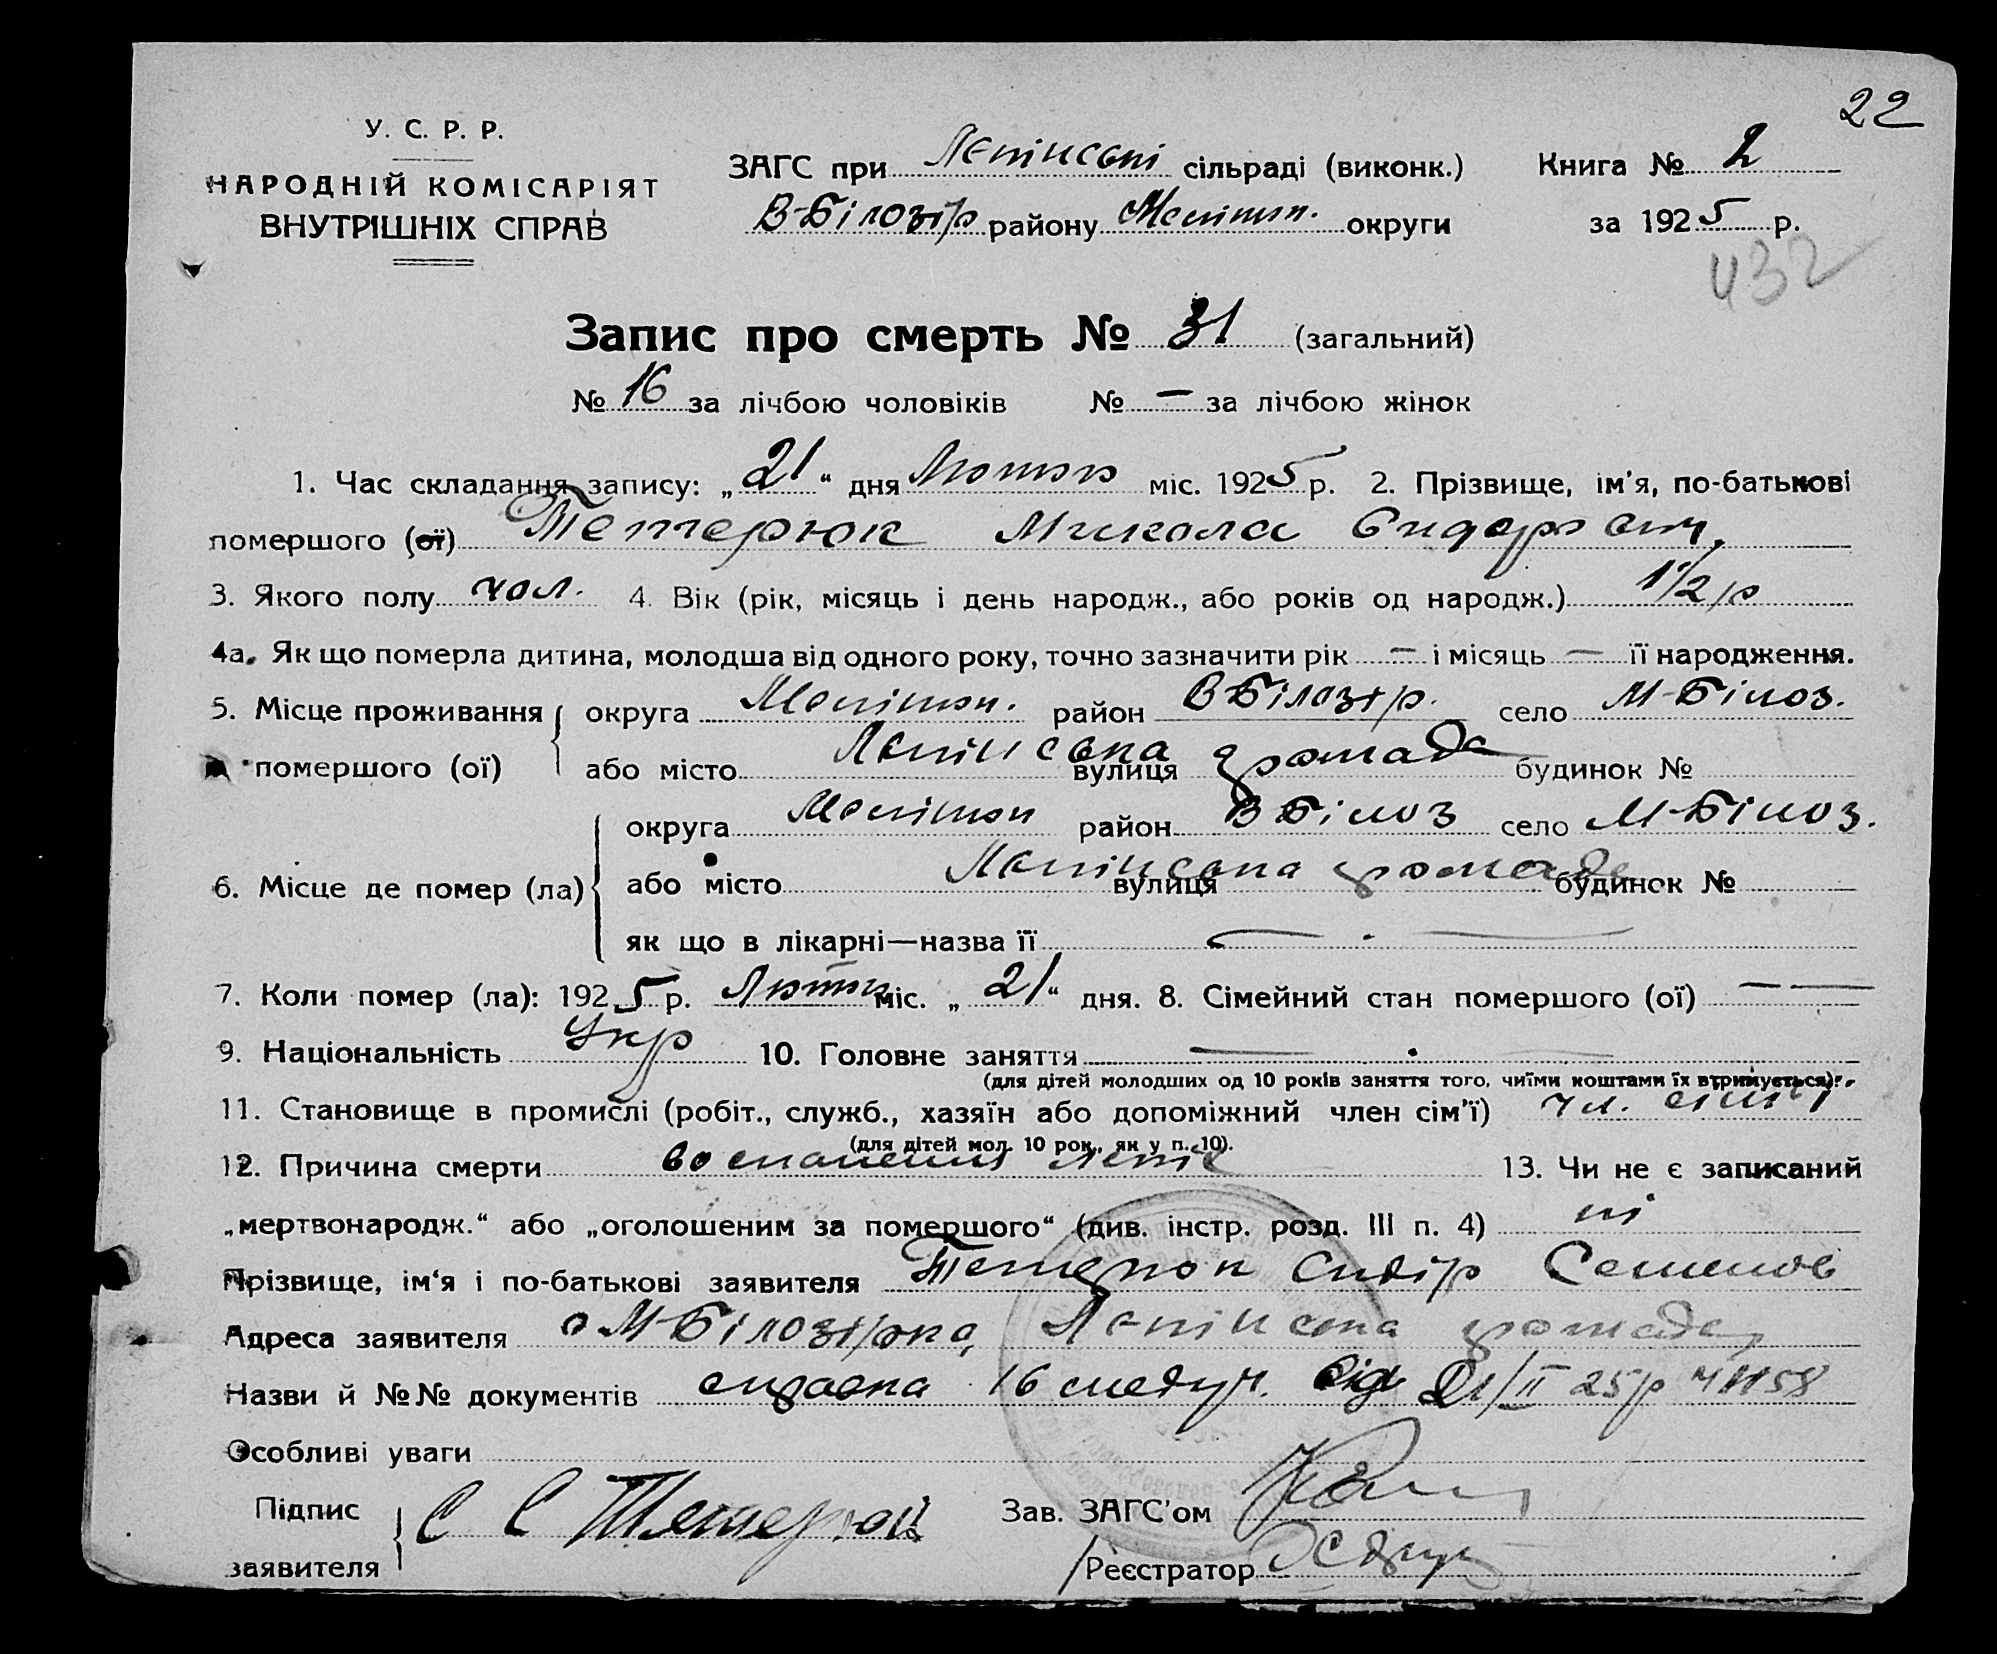 22
У. С. Р. Р.
НАРОДНІЙ КОМІСАРІЯТ
ВНУТРІШНІХ СПРАВ
ЗАГС при Лєнінські сільраді (виконк.) Книга № 2
В-Білозір району Меліton. округи за 1925 р.
432
Запис про смерть № 31 (загальний)
№ 16 за лічбою чоловіків № — за лічбою жінок
1. Час складання запису: „21“ дня Лютого міс. 1925 р. 2. Прізвище, ім'я, по-батькові
помершого (ої) Тетерюк Микола Сидорович,
3. Якого полу чол. 4. Вік (рік, місяць і день народж., або років од народж.) 1 1/2 р
4а. Як що померла дитина, молодша від одного року, точно зазначити рік — і місяць — її народження.
5. Місце проживання округа Мелітоп. район В-Білозір. село М-Білоз.
помершого (ої) або місто Лєнінська вулиця громада будинок №
округа Мелітоп район В Білоз село М-Білоз.
6. Місце де помер (ла) або місто Лєнінська вулиця громада будинок №
як що в лікарні—назва її —
7. Коли помер (ла): 1925 р. Лютого міс. „21“ дня. 8. Сімейний стан помершого (ої) — —
9. Національність Укр 10. Головне заняття —
(для дітей молодших од 10 років заняття того, чиїми коштами їх втримується).
11. Становище в промислі (робіт., служб., хазяїн або допоміжний член сім'ї) чл. сім'ї
(для дітей мол. 10 рок., як у п. 10).
12. Причина смерти воспаление 13. Чи не є записаний
„мертвонародж.“ або „оголошеним за помершого“ (див. інстр. розд. III п. 4) ні
Прізвище, ім'я і по-батькові заявителя Тетерюк Сидір Семенов
Адреса заявителя с М-Білозірка, Лєнінська громада,
Назви й №№ документів справка 16 від 21/II 25р Ч 1158
Особливі уваги
Підпис
заявителя С С Тетерюк
Зав. ЗАГС'ом
Реєстратор